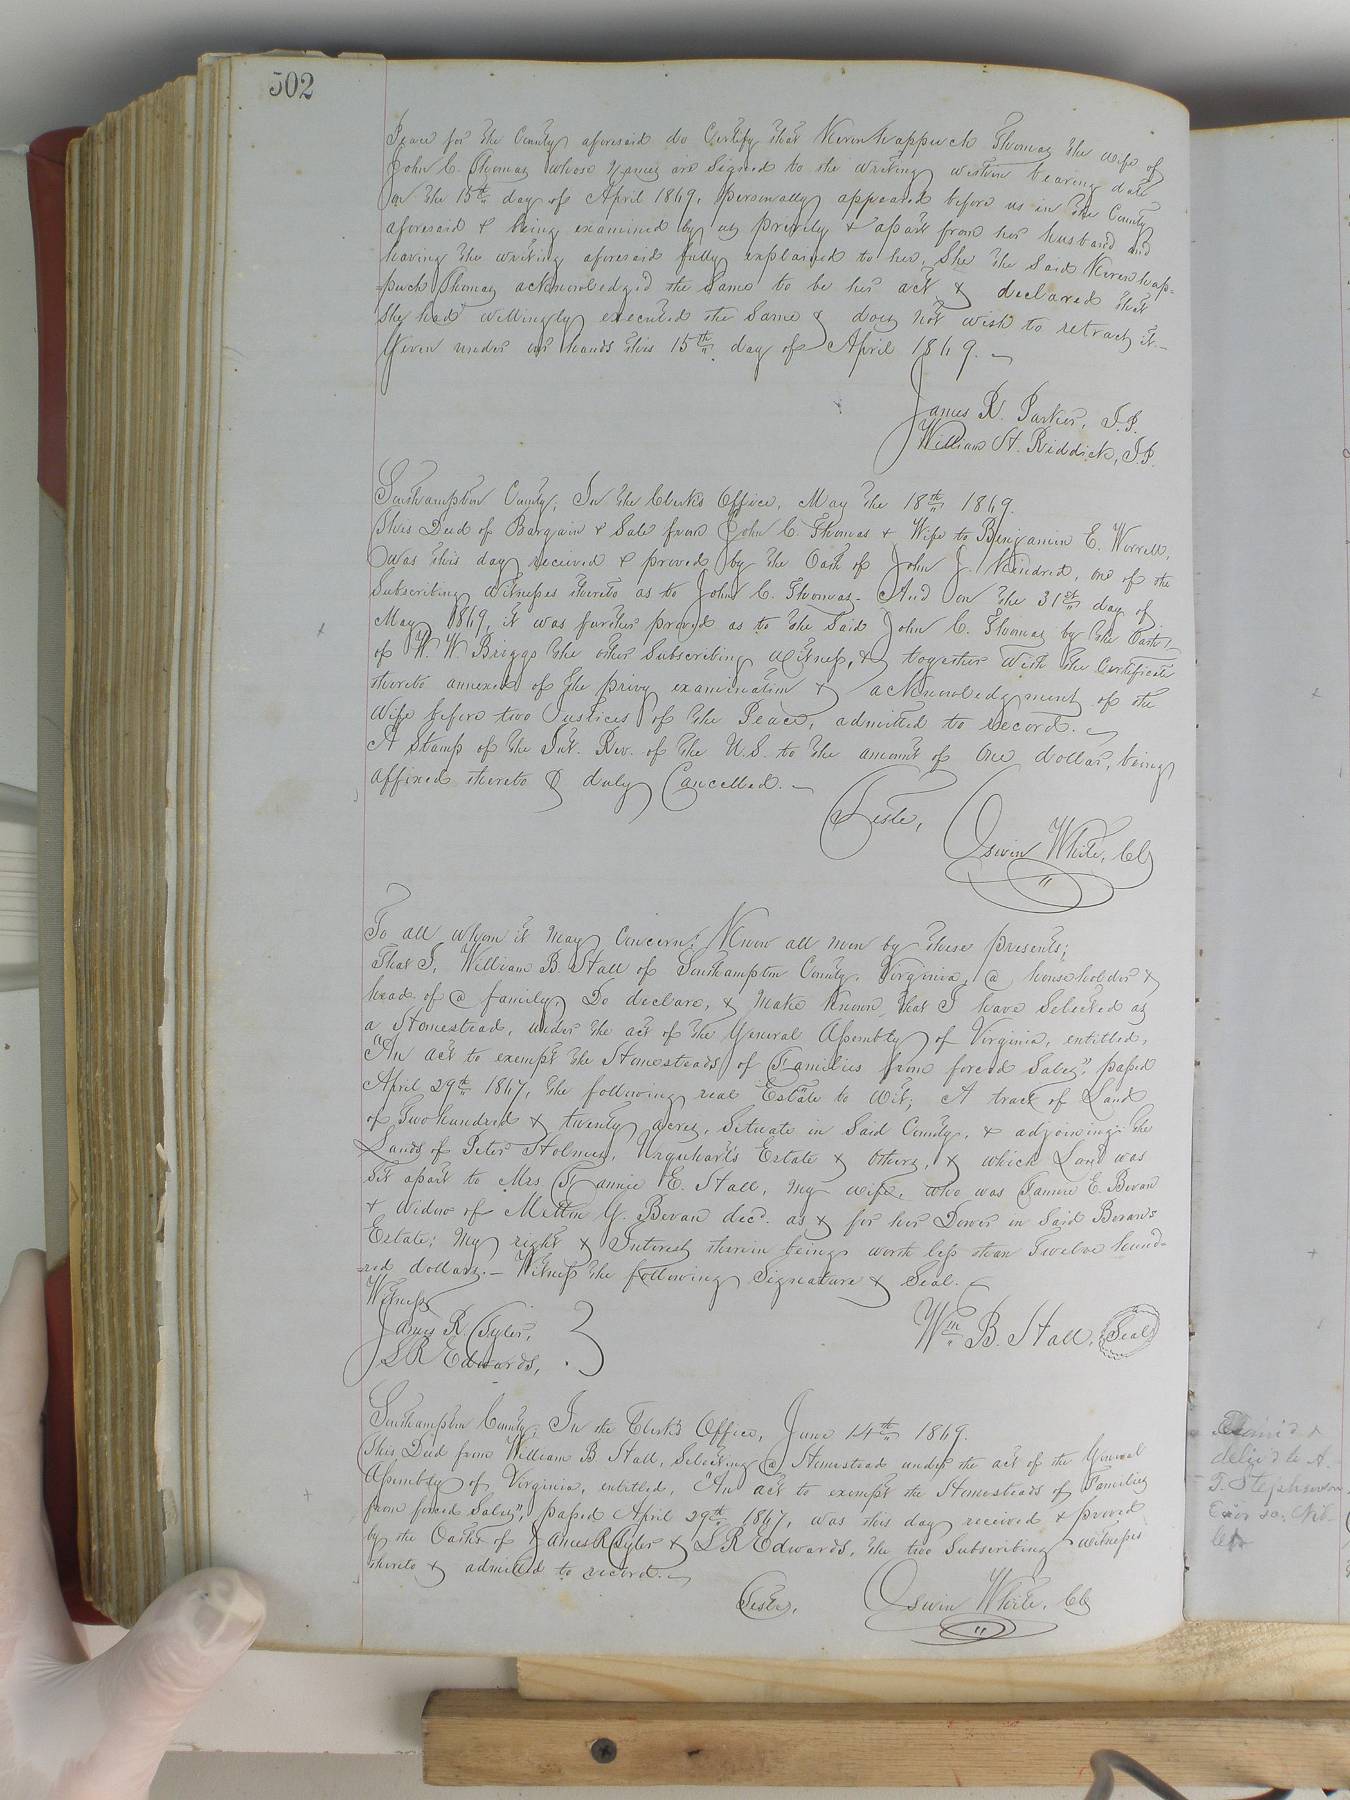 502
Peace for the County aforesaid do Certify that Kerenhappuch Thomas the wife of
John C. Thomas whose names are Signed to the writing within bearing date
on the 15th day of April 1869, personally appeared before us in the County
aforesaid & being examined by us privily & apart from her husband and
having the writing aforesaid fully explained to her, She the Said Kerenhap=
=puch Thomas acknowledged the Same to be her act & declared that
She had willingly executed the Same & does not wish to retract it—
Given under our hands this 15th day of April 1869.—
James R. Parker, J.P.
William H. Riddick, J.P.
Southampton County; In the Clerk's Office, May the 18th 1869.
This Deed of Bargain & Sale from John C. Thomas & Wife to Benjamin E. Worrell,
was this day received & proved by the Oath of John J. Kindred, one of the
Subscribing witnesses thereto as to John C. Thomas. And on the 31st day of
May 1869, it was further proved as to the Said John C. Thomas by the Oath
of W. W. Briggs the other Subscribing witness, & together with the Certificate
thereto annexed of the privy examination & acknowledgment of the
Wife before two Justices of the Peace, admitted to record.—
A Stamp of the Int. Rev. of the U.S. to the amount of One dollar, being
affixed thereto & duly Cancelled.—
Teste,
Oswin White, Clk
To all whom it May Concern: Know all men by these presents;
That I, William B. Hall of Southampton County, Virginia, a householder &
head of a family, Do declare, & Make Known that I have Selected as
a Homestead, under the act of the General Assembly of Virginia, entitled,
"An act to exempt the Homesteads of Families from forced Sales", passed
April 29th 1867, the following real Estate to wit; A tract of Land
of Two hundred & twenty acres, Situate in Said County, & adjoining the
Lands of Peter Holmes, Urquhart's Estate & Others, & which Land was
Set apart to Mrs. Fannie E. Hall, My wife, who was Fannie E. Bevan
& widow of Melton Y. Bevan decd. as & for her Dower in Said Bevan's
Estate; My right & Interest therein being worth less than Twelve hund=
=red dollars.— Witness the following Signature & Seal.—
Witness
James R. Tyler,
L R Edwards,
Wm B. Hall, Seal
Southampton County; In the Clerk's Office, June 14th 1869.
This Deed from William B. Hall, Selecting a Homestead under the act of the General
Assembly of Virginia, entitled, "An act to exempt the Homesteads of Families
from forced Sales", passed April 29th 1867, was this day received & proved
by the Oaths of James R Tyler & L R Edwards, the two Subscribing witnesses
thereto & admitted to record.—
Teste,
Oswin White, Clk
Exam'd &
deliv'd to A.
T. Stephenson